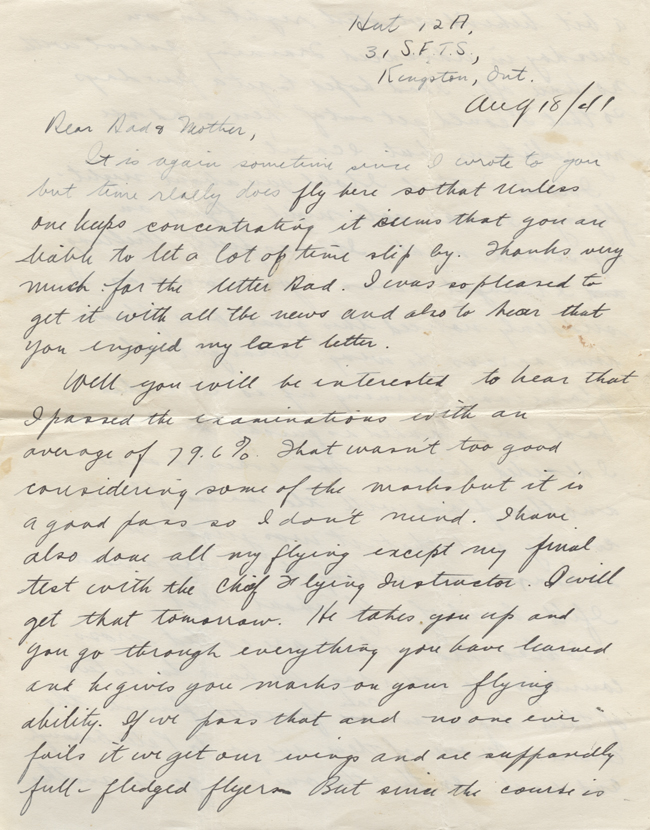 Hut 12A,
31 S.F.T.S.,
Kingston, Ont.
Aug 18/41
Dear Dad & Mother,
It is again sometime since I wrote to you
but time really does fly here so that unless
one keeps concentrating it seems that you are
liable to let a lot of time slip by. Thanks very
much for the letter Dad. I was so pleased to
get it with all the news and also to hear that
you enjoyed my last letter.
Well you will be interested to hear that
I passed the examinations with an
average of 79.6%. That wasn't too good
considering some of the marks but it is
a good pass so I don't mind. I have
also done all my flying except my final
test with the Chief Flying Instructor. I will
get that tomorrow. He takes you up and
you go through everything you have learned
and he gives you marks on your flying
ability. If we pass that and no one ever
fails it we get our wings and are supposedly
full-fledged flyers. But since the course is